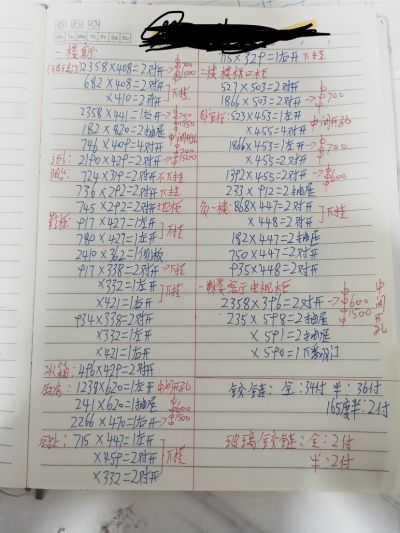 Mo Tu We Th Fr Sa Su
一楼新
2358×408=2对开→中700 中1500
682×408=2对开
×410=2对开 下柱
2358×441=1左开→中700 中1350
182×820=2抽屉
746×409=4对开
2190×429=2对开→中700 中1500
724×319=2对开 下柱
736×292=2对开 下柱
745×292=2对开 地柜
鞋柜:917×427=1左开
780×427=1左开 下柱
2410×362=1侧板
917×338=2对开→下柱
×332=1左开
×421=1右开 下柱
934×338=2对开
×332=1左开
×421=1右开
冰箱:496×429=2对开
厨房:1238×620=1左开 中间开孔
241×620=1抽屉
2266×470=1左开→中600 中1500
715×447=1左开
×459=2对开 下柱
×332=2对开
715×329=1左开 下柱
527×503=2对开
1866×503=2对开→中700
523×453=1左开
×455=4对开 中间开孔
1866×453=1左开→中700
×455=2对开
1392×455=2对开→中600
233×912=2抽屉
负一楼:868×447=2对开
×448=2对开 下柱
182×447=2抽屉
750×447=2对开
935×448=2对开
一楼客厅电视柜
2358×396=2对开→中600 中1500 中间开孔
235×598=2抽屉
×591=2抽屉
×590=1下翻门
铰链:全:34付 半:36付
165度半:2付
玻璃铰链:全:2付
半:2付